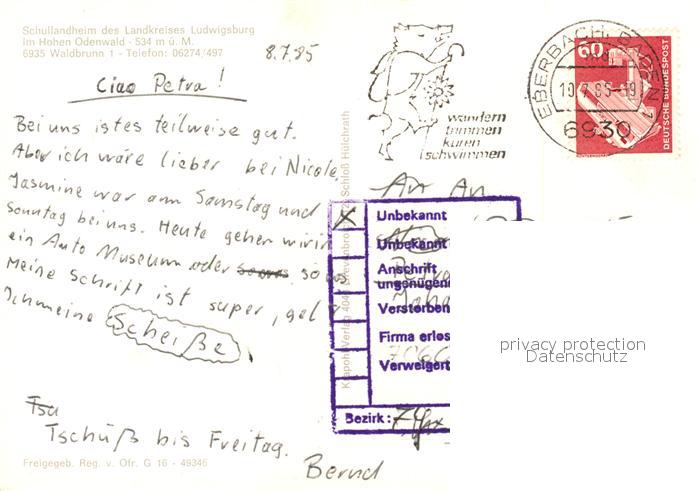 Schullandheim des Landkreises Ludwigsburg
im Hohen Odenwald - 534 m ü. M.
6935 Waldbrunn 1 - Telefon: 06274/497
8.7.85
Ciao Petra!
Bei uns ist es teilweise gut.
Aber ich wäre lieber bei Nicole.
Jasmine war am Samstag und
Sonntag bei uns. Heute gehen wir in
ein Auto Museum oder so was
Meine Schrift ist super, gel?
Ich meine Scheiße
Tsu
Tschüß bis Freitag.
Bernd
Freigegeb. Reg. v. Ofr. G 16 - 49346
Krapohl-Verlag 404 Grevenbroich 2 Schloß Hülchrath
wandern
trimmen
kuren
schwimmen
EBERBACH, BADEN 1
10.7.85-19
6930
60
DEUTSCHE BUNDESPOST
An An
X Unbekannt
Unbekannt
Anschrift
ungenügend
Verstorben
Firma erlos
Verweigert
Bezirk:
privacy protection
Datenschutz